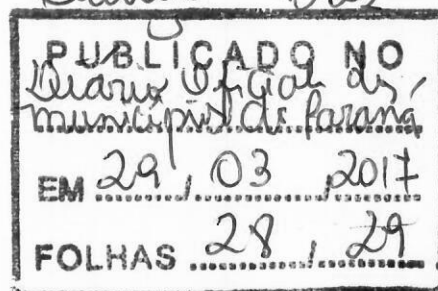 PUBLICADO NO
Diário Oficial dos
municípios do Paraná
EM 29 / 03 / 2017
FOLHAS 28 / 29